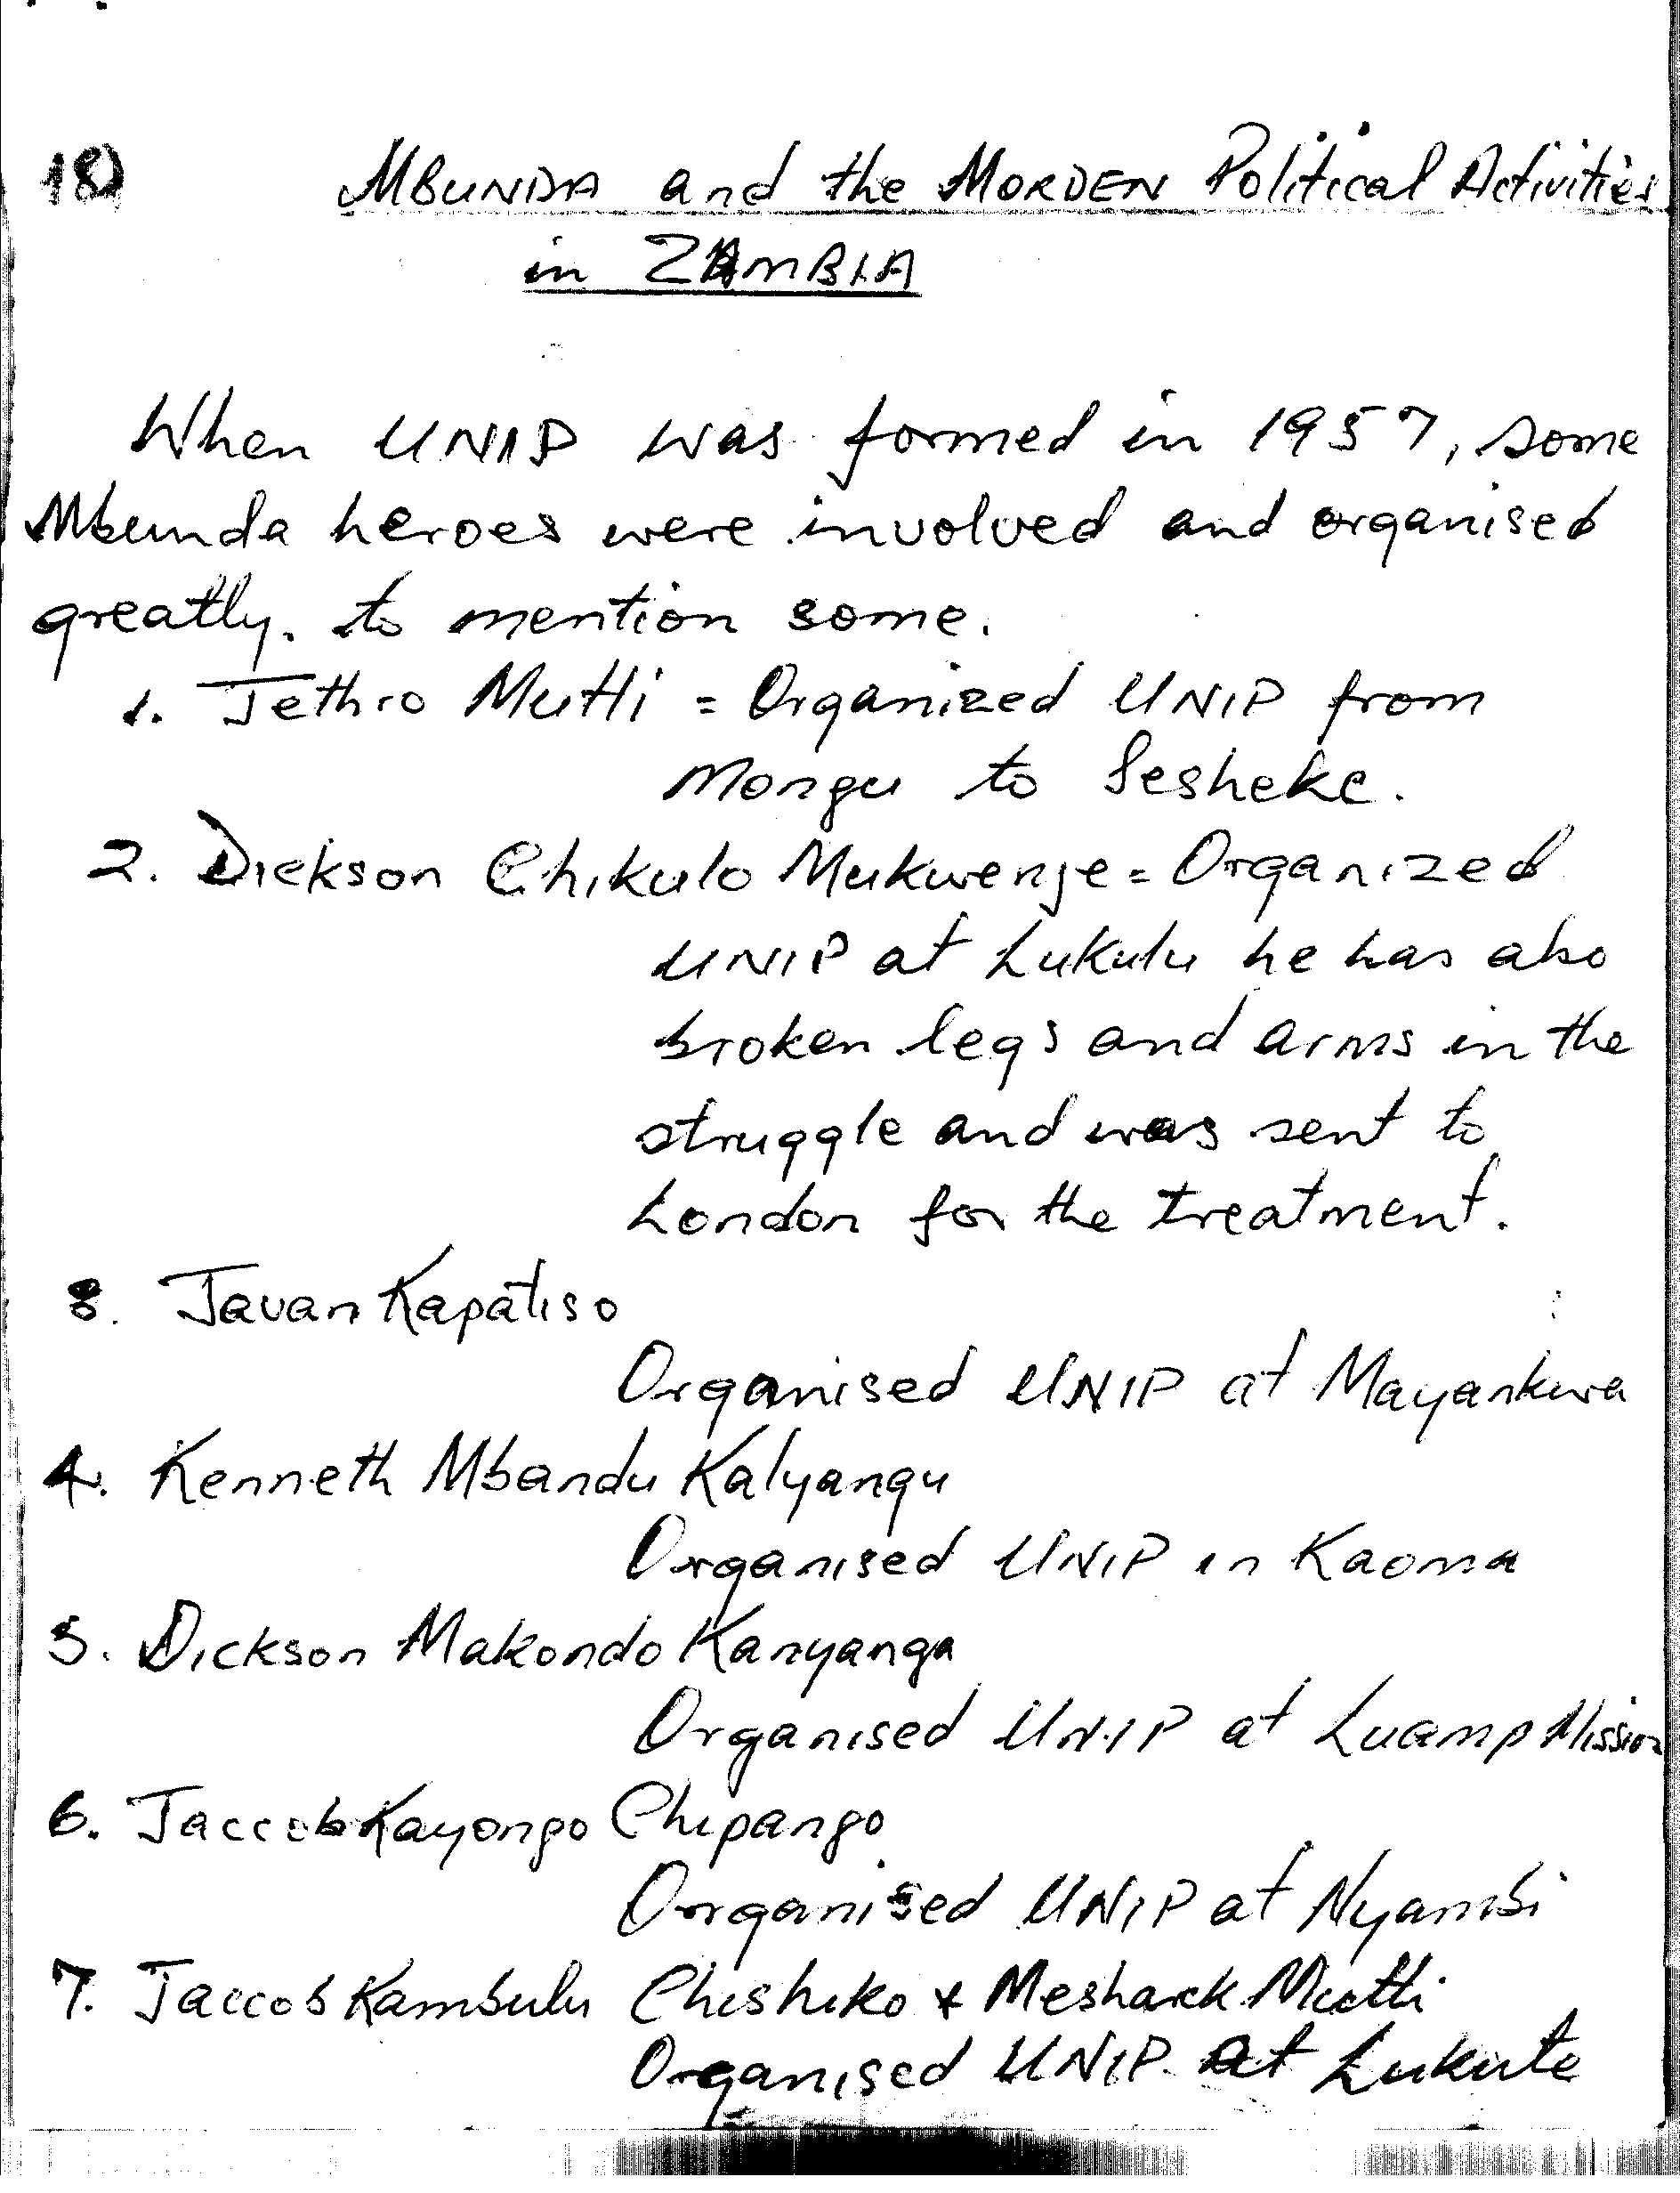 18) MBUNDA and the MORDEN Political Activities
in ZAMBIA
When UNIP was formed in 1957, some
Mbunda heroes were involved and organised
greatly. to mention some.
1. Jethro Mutti = Organized UNIP from
Mongu to Sesheke.
2. Dickson Chikulo Mukwenje = Organized
UNIP at Lukulu he has also
broken legs and arms in the
struggle and was sent to
London for the treatment.
3. Javan Kapatiso
Organised UNIP at Mayankwa
4. Kenneth Mbandu Kalyangu
Organised UNIP in Kaoma
5. Dickson Makondo Kanyanga
Organised UNIP at Luamp Mission
6. Jaccob Kayongo Chipango
Organised UNIP at Nyambi
7. Jaccob Kambulu Chishiko & Meshack Mutti
Organised UNIP at Lukute